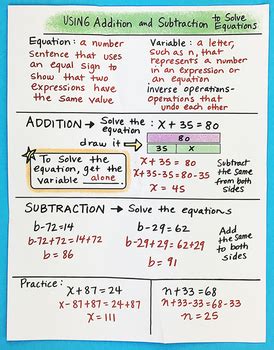 USING Addition and Subtraction to Solve Equations
Equation: a number
sentence that uses
an equal sign to
show that two
expressions have
the same value
Variable: a letter,
such as n, that
represents a number
in an expression or
an equation
inverse operations-
operations that
undo each other
ADDITION → Solve the equation : x + 35 = 80
draw it
80
35 x
To Solve the
equation, get the
variable alone.
x + 35 = 80
x+35-35=80-35
x = 45
Subtract
the same
from both
sides
SUBTRACTION → Solve the equations
b-72=14
b-72+72=14+72
b = 86
b-29=62
b-29+29=62+29
b = 91
Add
the same
to both
sides
Practice:
x+87=24
x-87+87=24+87
x=111
n+33=68
n+33-33=68-33
n = 25